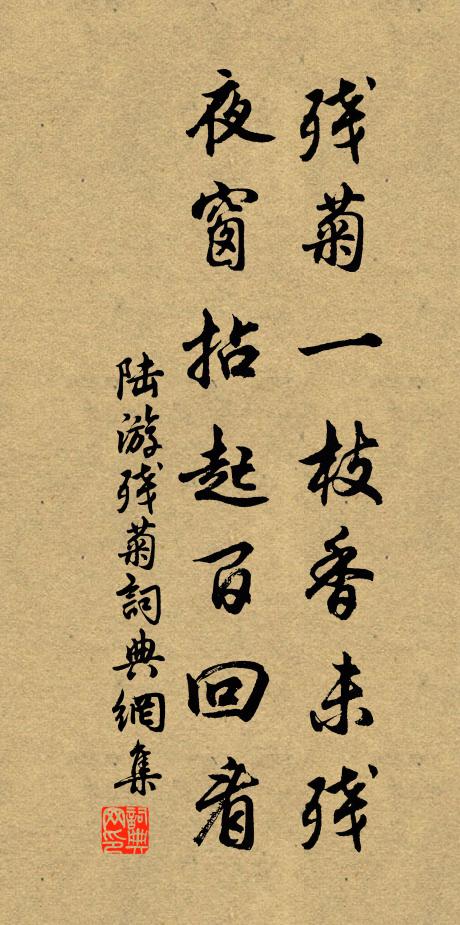 残菊一枝香未残
夜窗拈起百回看
陆游残菊詞典網集
詞典網印